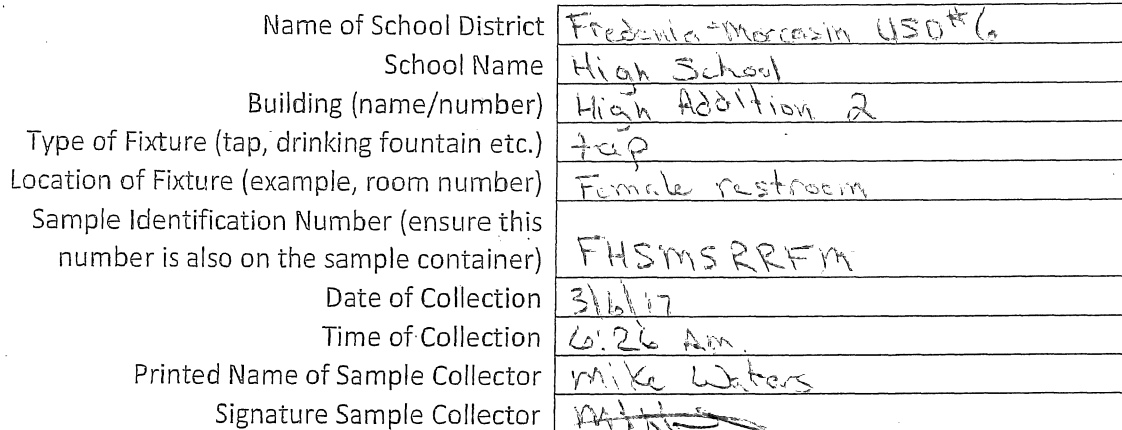 Name of School District Fredonia-Moccasin USD #6
School Name High School
Building (name/number) High Addition 2
Type of Fixture (tap, drinking fountain etc.) tap
Location of Fixture (example, room number) Female restroom
Sample Identification Number (ensure this
number is also on the sample container) FHSMSRRFM
Date of Collection 3/6/17
Time of Collection 6:26 Am.
Printed Name of Sample Collector Mike Waters
Signature Sample Collector